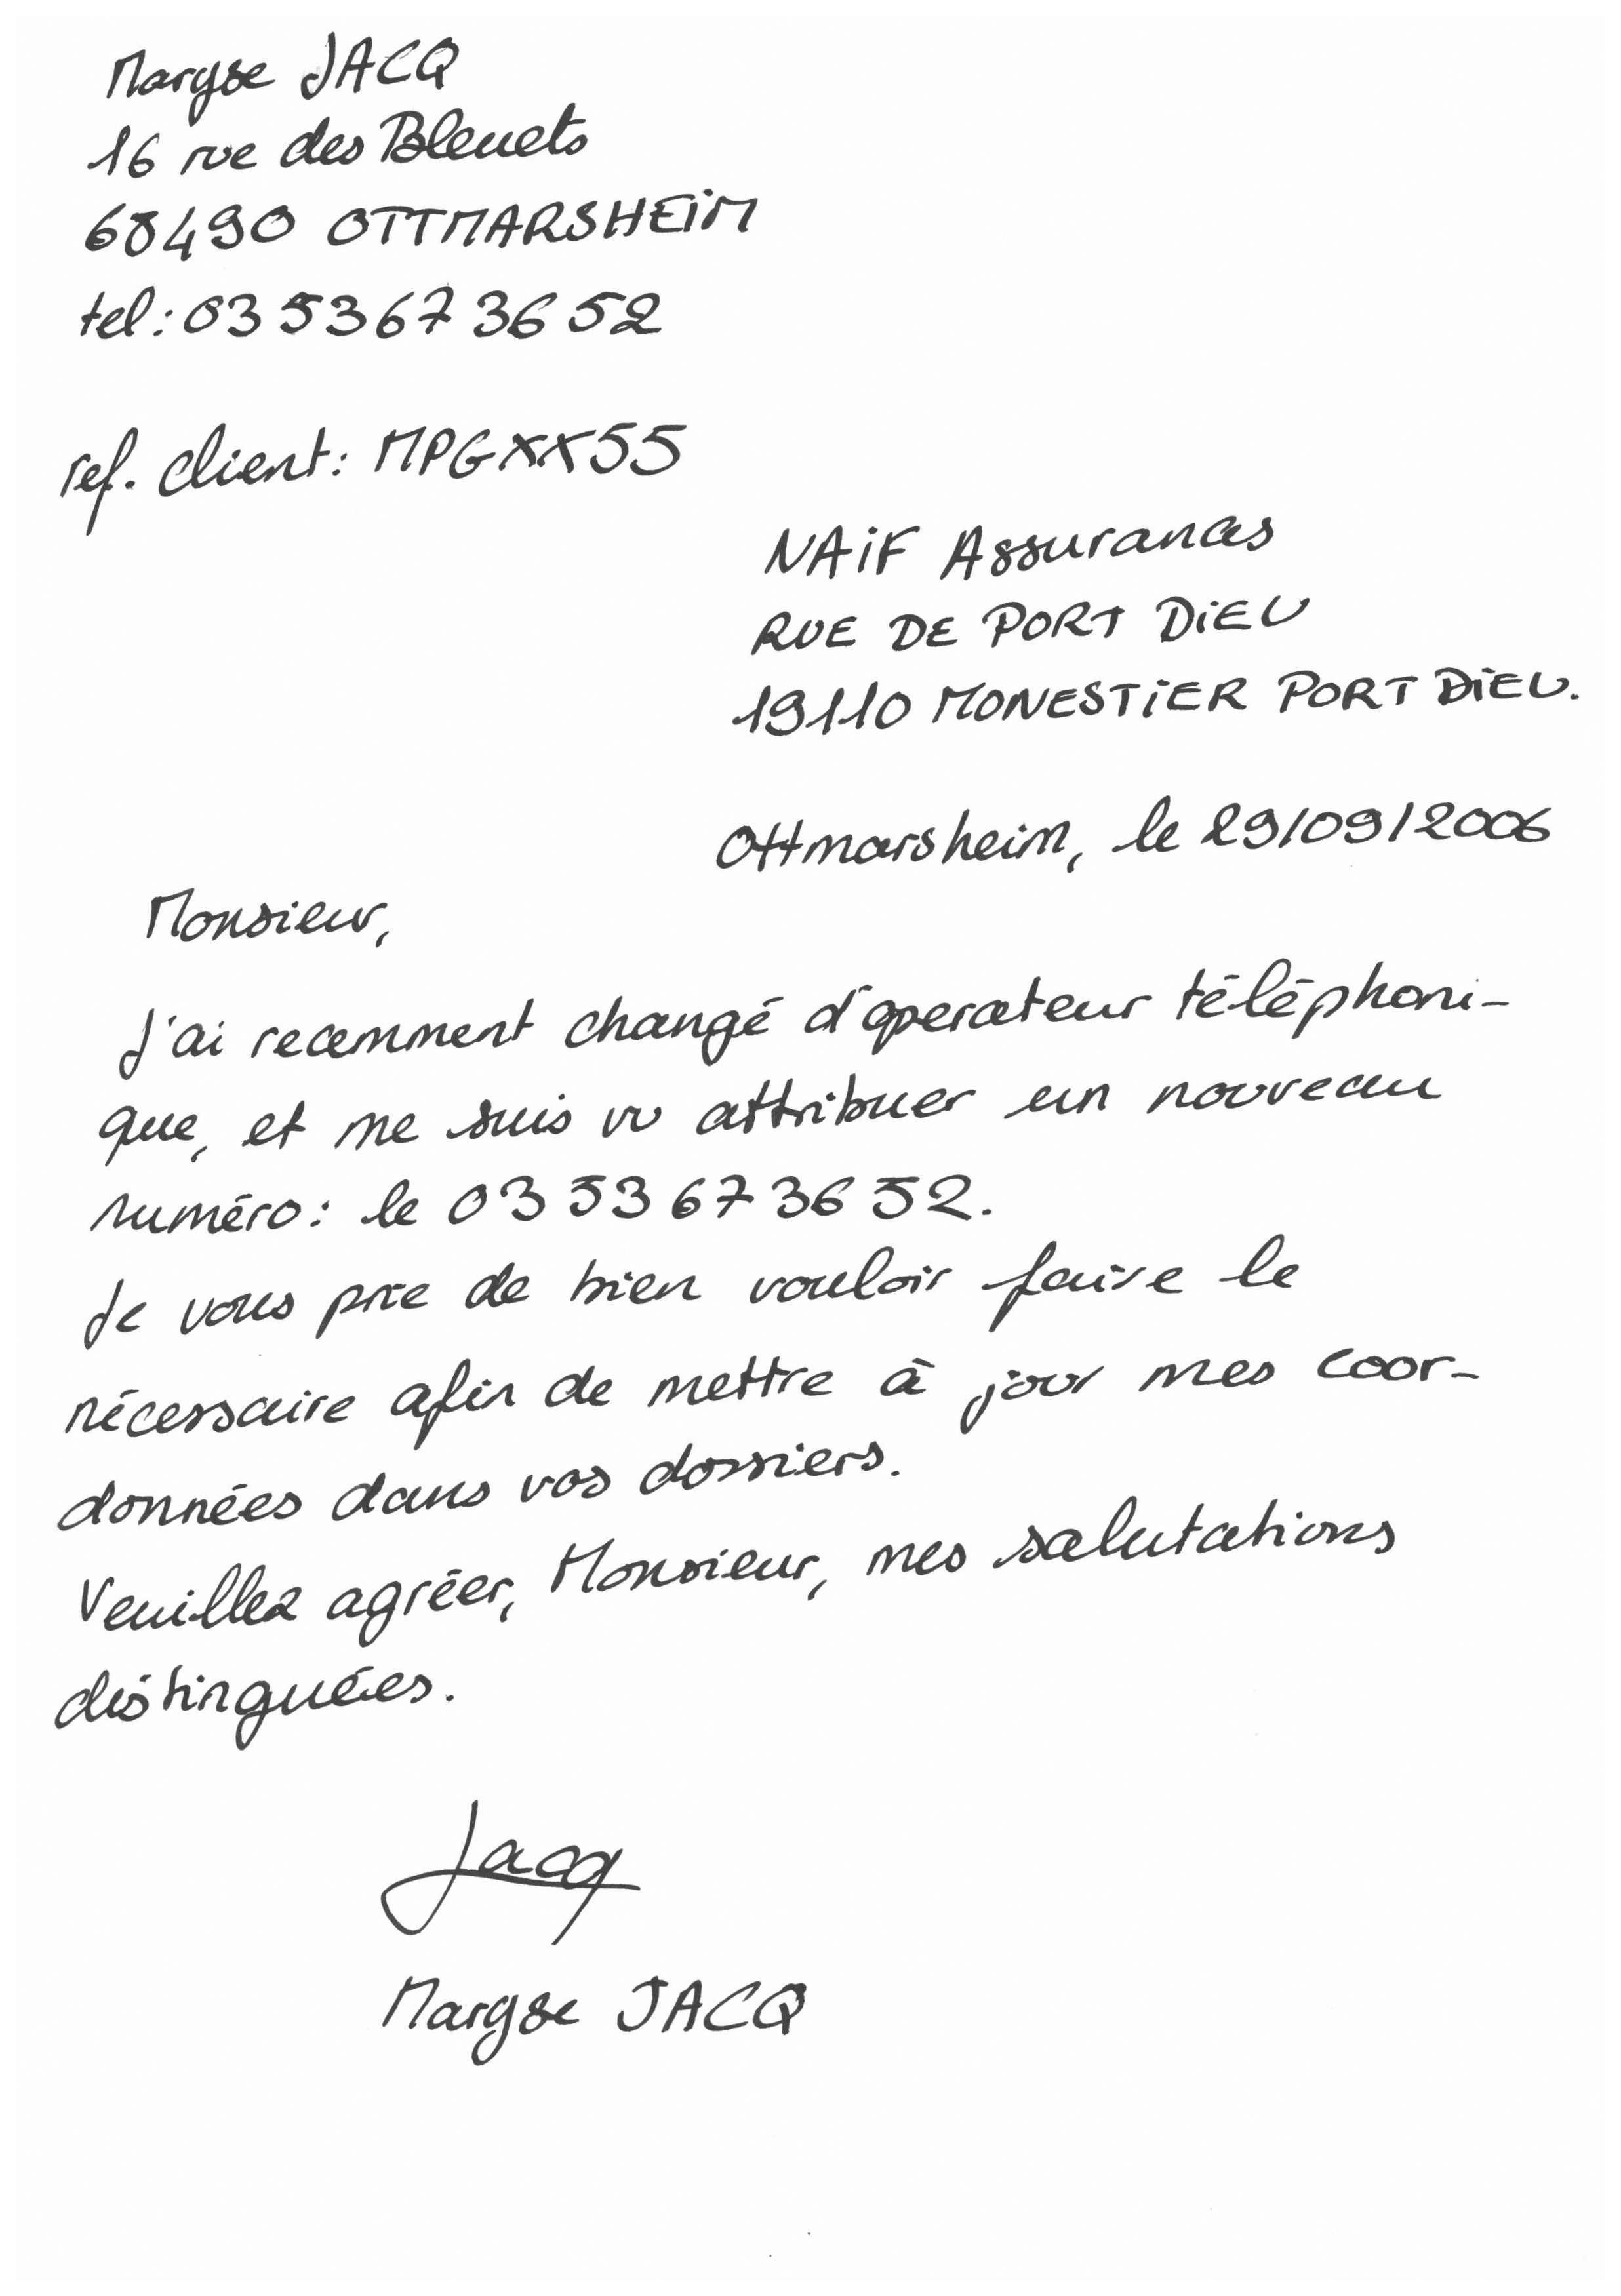 Maryse JACQ
16 rue des Bleuets
68490 OTTMARSHEIM
tel: 03 53 67 36 52
ref. client: MPGXX55
NAIF Assurances
RUE DE PORT DIEU
19110 MONESTIER PORT DIEU.
Ottmarsheim, le 29/09/2006
Monsieur,
J'ai recemment changé d'operateur téléphoni-
que, et me suis vu attribuer un nouveau
numéro: le 03 53 67 36 52.
Je vous prie de bien vouloir faire le
nécessaire afin de mettre à jour mes coor-
données dans vos dossiers.
Veuillez agréer, Monsieur, mes salutations
distinguées.
Jacq
Maryse JACQ